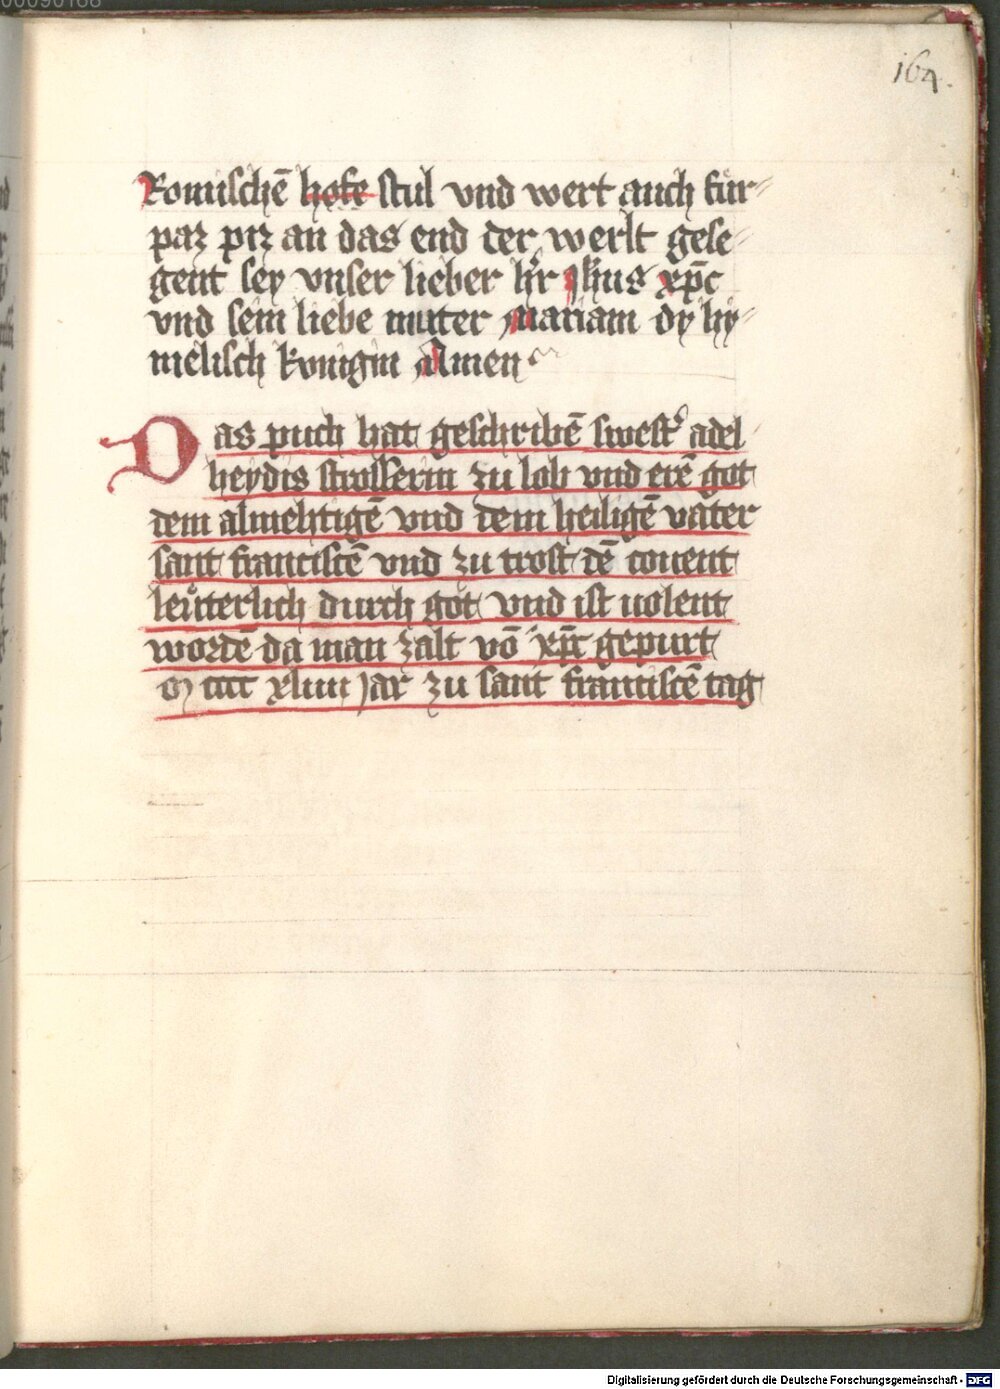 00090168
164.
Romischē hofe stul vnd wert auch für⸗
paz piz an das end der werlt gese⸗
gent sey vnser lieber h̄r Jh̄us xp̄c
vnd sein liebe muter Mariam dy hy⸗
melisch konigin Amen
Das puch hat geschribē swest̄ adel
heydis strosserin zu lob vnd erē got
dem almehtigē vnd dem heiligē vater
sant franciscē vnd zu trost dē couent
leüterlich durch got vnd ist uolent
wordē da man zalt vō xp̄c gepurt
M cccc xliiii jar zu sant franciscē tag
Digitalisierung gefördert durch die Deutsche Forschungsgemeinschaft - DFG